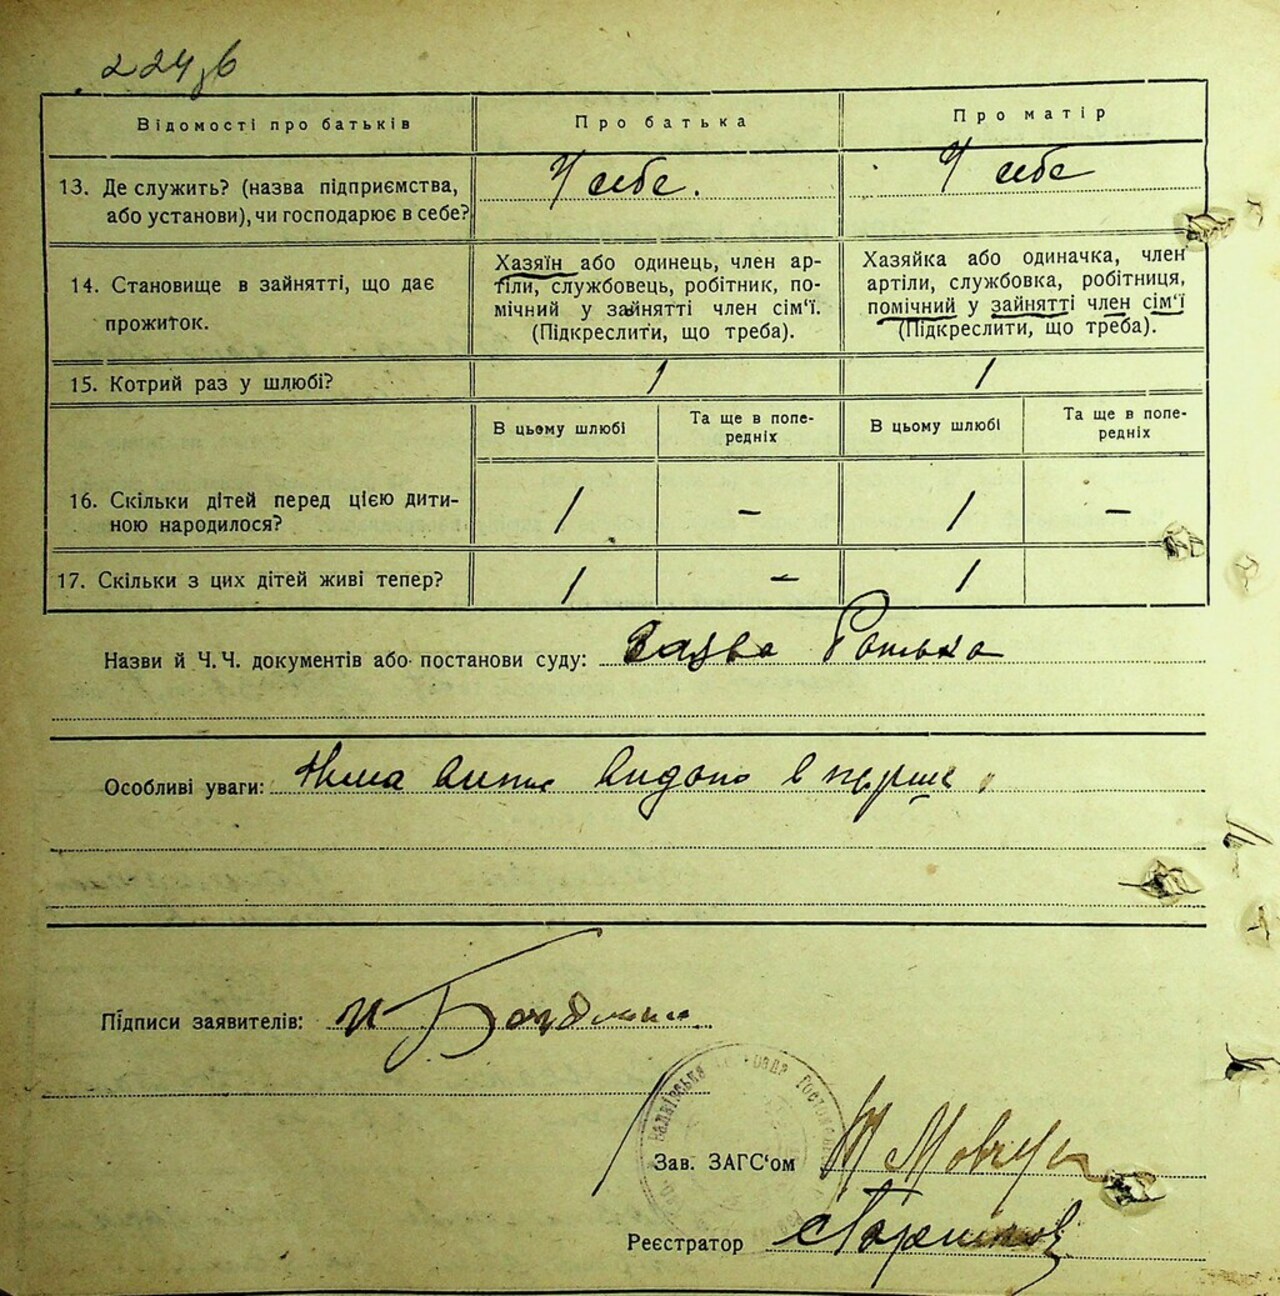 224зв
Відомості про батьків
Про батька
Про матір
13. Де служить? (назва підприємства,
або установи), чи господарює в себе?
У себе.
У себе
14. Становище в зайнятті, що дає
прожиток.
Хазяїн або одинець, член ар-
тіли, службовець, робітник, по-
мічний у зайнятті член сім‘ї.
(Підкреслити, що треба).
Хазяйка або одиначка, член
артіли, службовка, робітниця,
помічний у зайнятті член сім‘ї
(Підкреслити, що треба).
15. Котрий раз у шлюбі?
1
1
В цьому шлюбі
Та ще в попе-
редніх
В цьому шлюбі
Та ще в попе-
редніх
16. Скільки дітей перед цією дити-
ною народилося?
1
–
1
–
17. Скільки з цих дітей живі тепер?
1
–
1
Назви й Ч.Ч. документів або постанови суду: Заява Батька
Особливі уваги: Нема витяг видано в перше
Підписи заявителів:
Зав. ЗАГС‘ом
Реєстратор